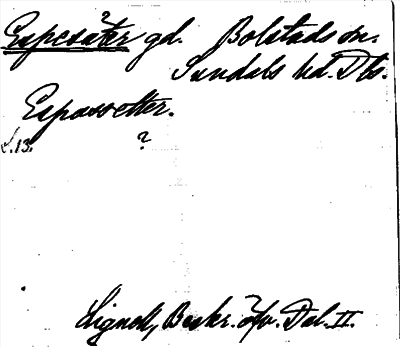 ?
Espesäter gd. Bolstads sn.
Sundals hd. Dls.
Espassetter.
L.13. ?
Lignell, Beskr. öfv. Dal. II.